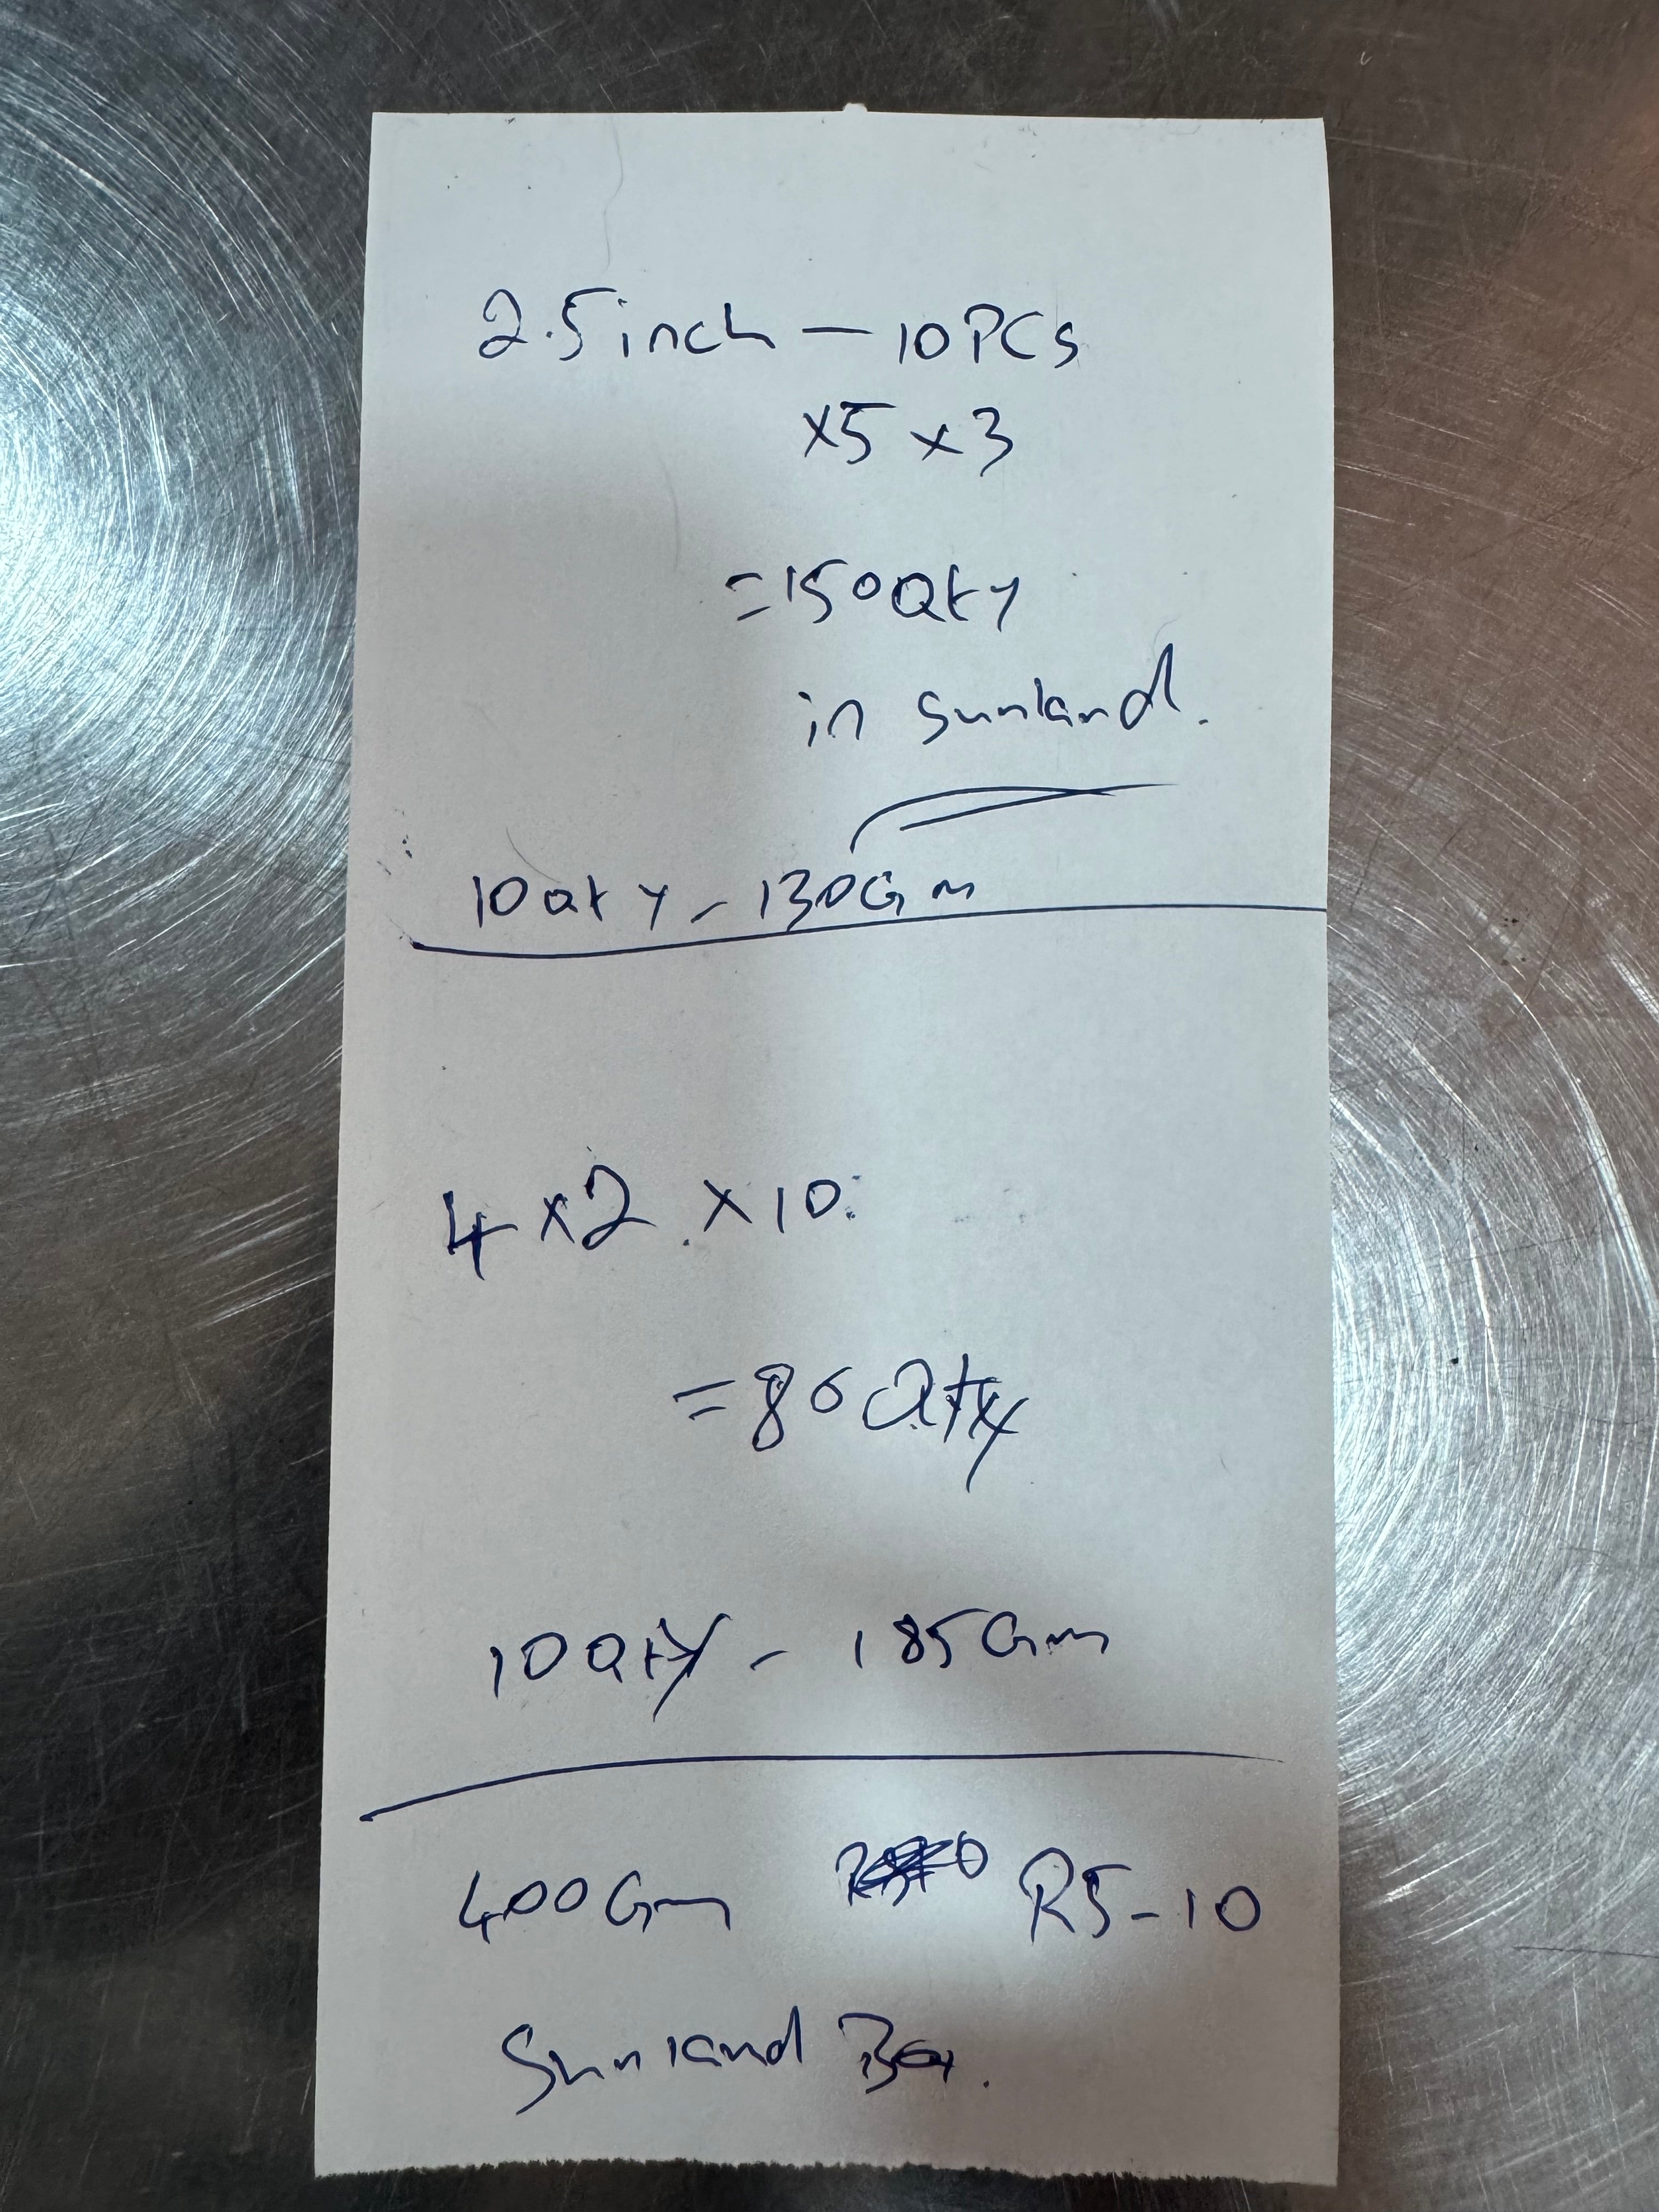 2.5 inch — 10 PCs
x5 x3
= 150 Qty
in sunland.
10 Qty - 130Gm
4 x2 x10
= 80 Qty
10 Qty - 185Gm
400Gm R5-10
Sunland